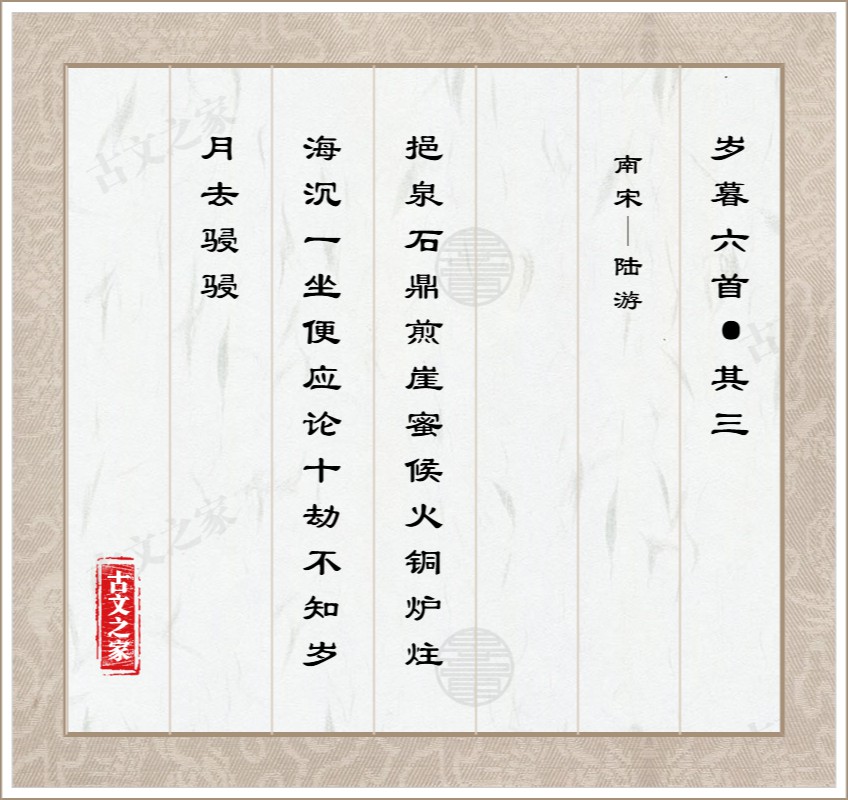 岁暮六首●其三
南宋—陆游
挹泉石鼎煎崖蜜候火铜炉炷
海沉一坐便应论十劫不知岁
月去骎骎
古文之家
古文之家
古文之家